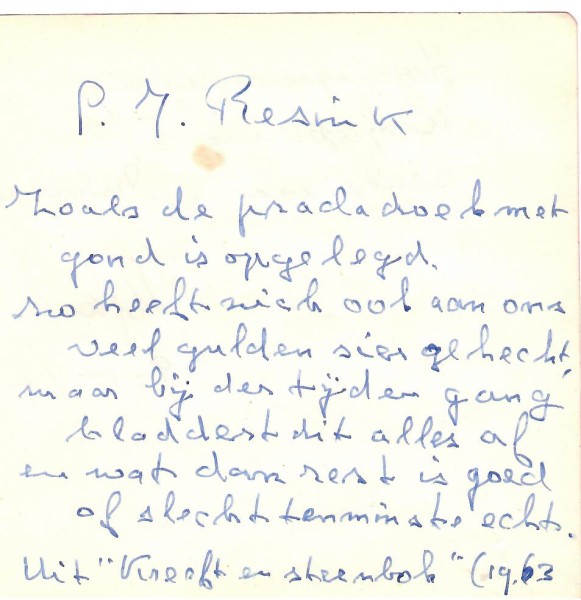 G. J. Resink
Zoals de pradadoek met
goud is opgelegd,
zo heeft zich ook aan ons
veel gulden sier gehecht,
maar bij der tijden gang
bladdert dit alles af
en wat dan rest is goed
of slecht tenminste echt.
Uit "Kreeft en steenbok" (1963